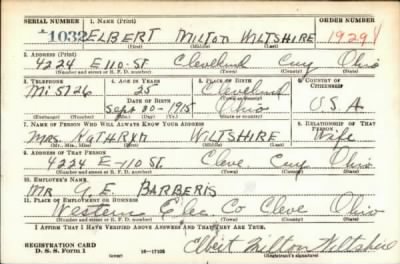 SERIAL NUMBER 1. NAME (Print) ORDER NUMBER
1032 ELBERT MILTON WILTSHIRE 1929
(First) (Middle) (Last)
2. ADDRESS (Print)
4224 E 110 St Cleveland Cuy Ohio
(Number and street or R. F. D. number) (Town) (County) (State)
3. TELEPHONE 4. AGE IN YEARS 5. PLACE OF BIRTH 6. COUNTRY OF CITIZENSHIP
Mi 5726 25 Cleveland
DATE OF BIRTH (Town or county)
Sept 30 - 1915 Ohio U.S.A
(Exchange) (Number) (Mo.) (Day) (Yr.) (State or country)
7. NAME OF PERSON WHO WILL ALWAYS KNOW YOUR ADDRESS 8. RELATIONSHIP OF THAT PERSON
MRS. KATHRYN WILTSHIRE Wife
(Mr., Mrs., Miss) (First) (Middle) (Last)
9. ADDRESS OF THAT PERSON
4224 E-110 St. Cleve Cuy Ohio
(Number and street or R. F. D. number) (Town) (County) (State)
10. EMPLOYER'S NAME
MR G. E. BARBERIS
11. PLACE OF EMPLOYMENT OR BUSINESS
Western Elec. Co Cleve Ohio
(Number and street or R. F. D. number) (Town) (County) (State)
I AFFIRM THAT I HAVE VERIFIED ABOVE ANSWERS AND THAT THEY ARE TRUE.
REGISTRATION CARD
D. S. S. Form 1 16-17105 Elbert Milton Wiltshire
(Registrant's signature)